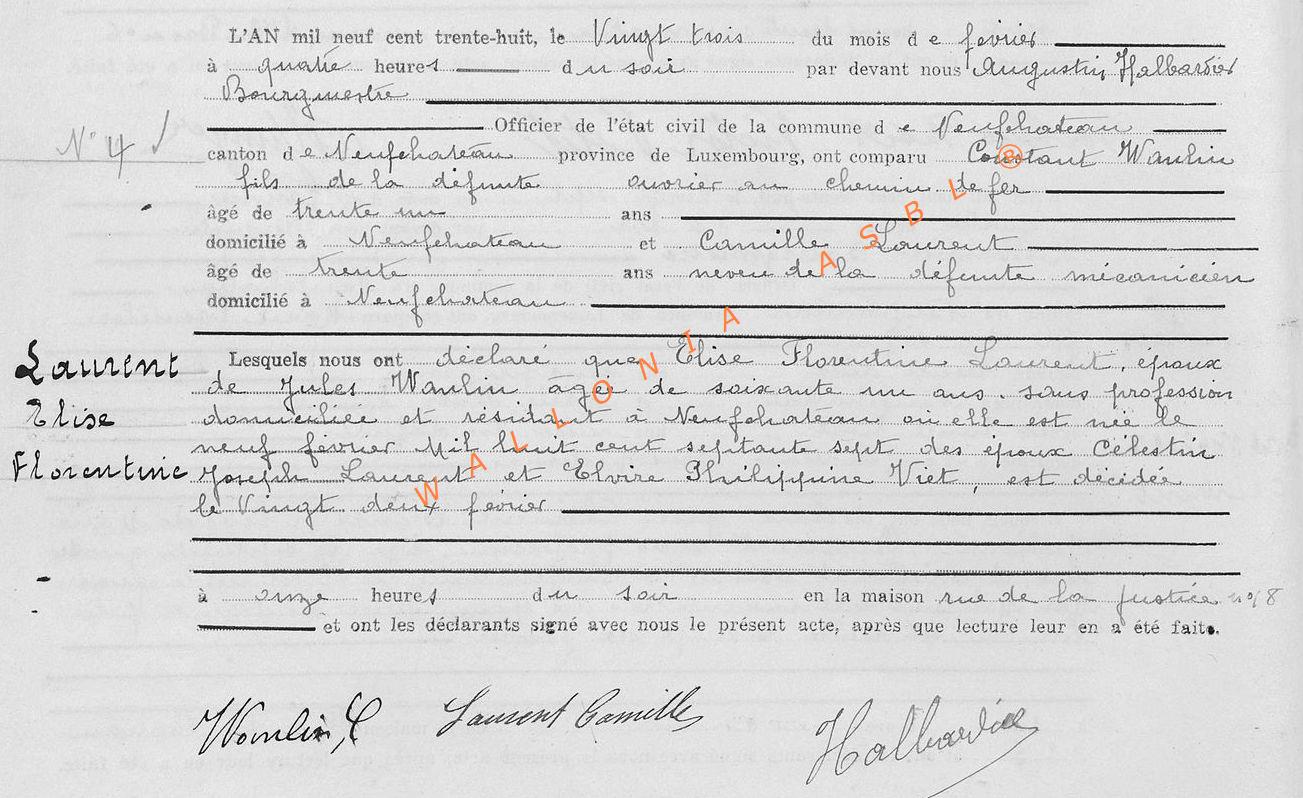 L'AN mil neuf cent trente-huit, le Vingt trois du mois d e février
à quatre heures du soir par devant nous Augustin Halbardier
Bourgmestre
Officier de l'état civil de la commune d e Neufchateau
N° 4
canton d e Neufchateau province de Luxembourg, ont comparu Constant Wanlin
fils de la défunte ouvrier au chemin de fer
âgé de trente un ans
domicilié à Neufchateau et Camille Laurent
âgé de trente ans neveu de la défunte mécanicien
domicilié à Neufchateau
Laurent
Elise
Florentine
Lesquels nous ont déclaré que Elise Florentine Laurent, époux
de Jules Wanlin âgée de soixante un ans. sans profession
domiciliée et résidant à Neufchateau où elle est née le
neuf février Mil huit cent septante sept des époux Célestin
Joseph Laurent et Elvire Philippine Viet, est décidée
le Vingt deux février
à onze heures du soir en la maison rue de la Justice n° 8
et ont les déclarants signé avec nous le présent acte, après que lecture leur en a été faite.
Wanlin, C Laurent Camille Halbardier
WALLONIA ASBL ®